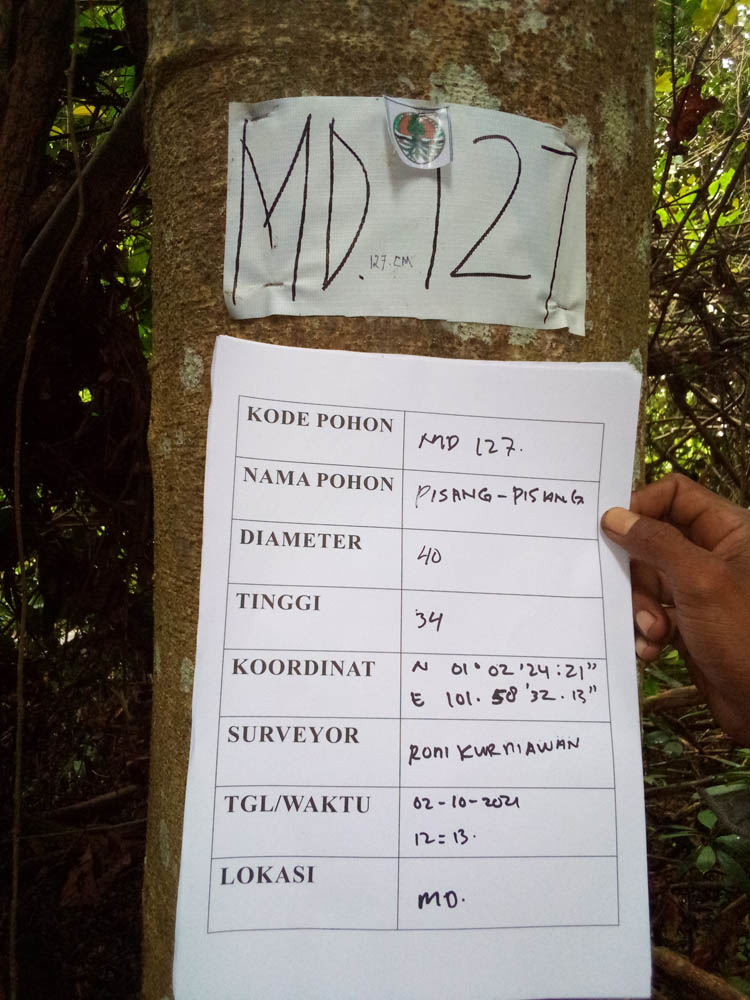 MD. 127
127.CM
KODE POHON MD 127.
NAMA POHON PISANG-PISANG
DIAMETER 40
TINGGI 34
KOORDINAT N 01° 02 '24:21"
E 101. 58 '32.13"
SURVEYOR RONI KURNIAWAN
TGL/WAKTU 02-10-2021
12=13.
LOKASI MD.